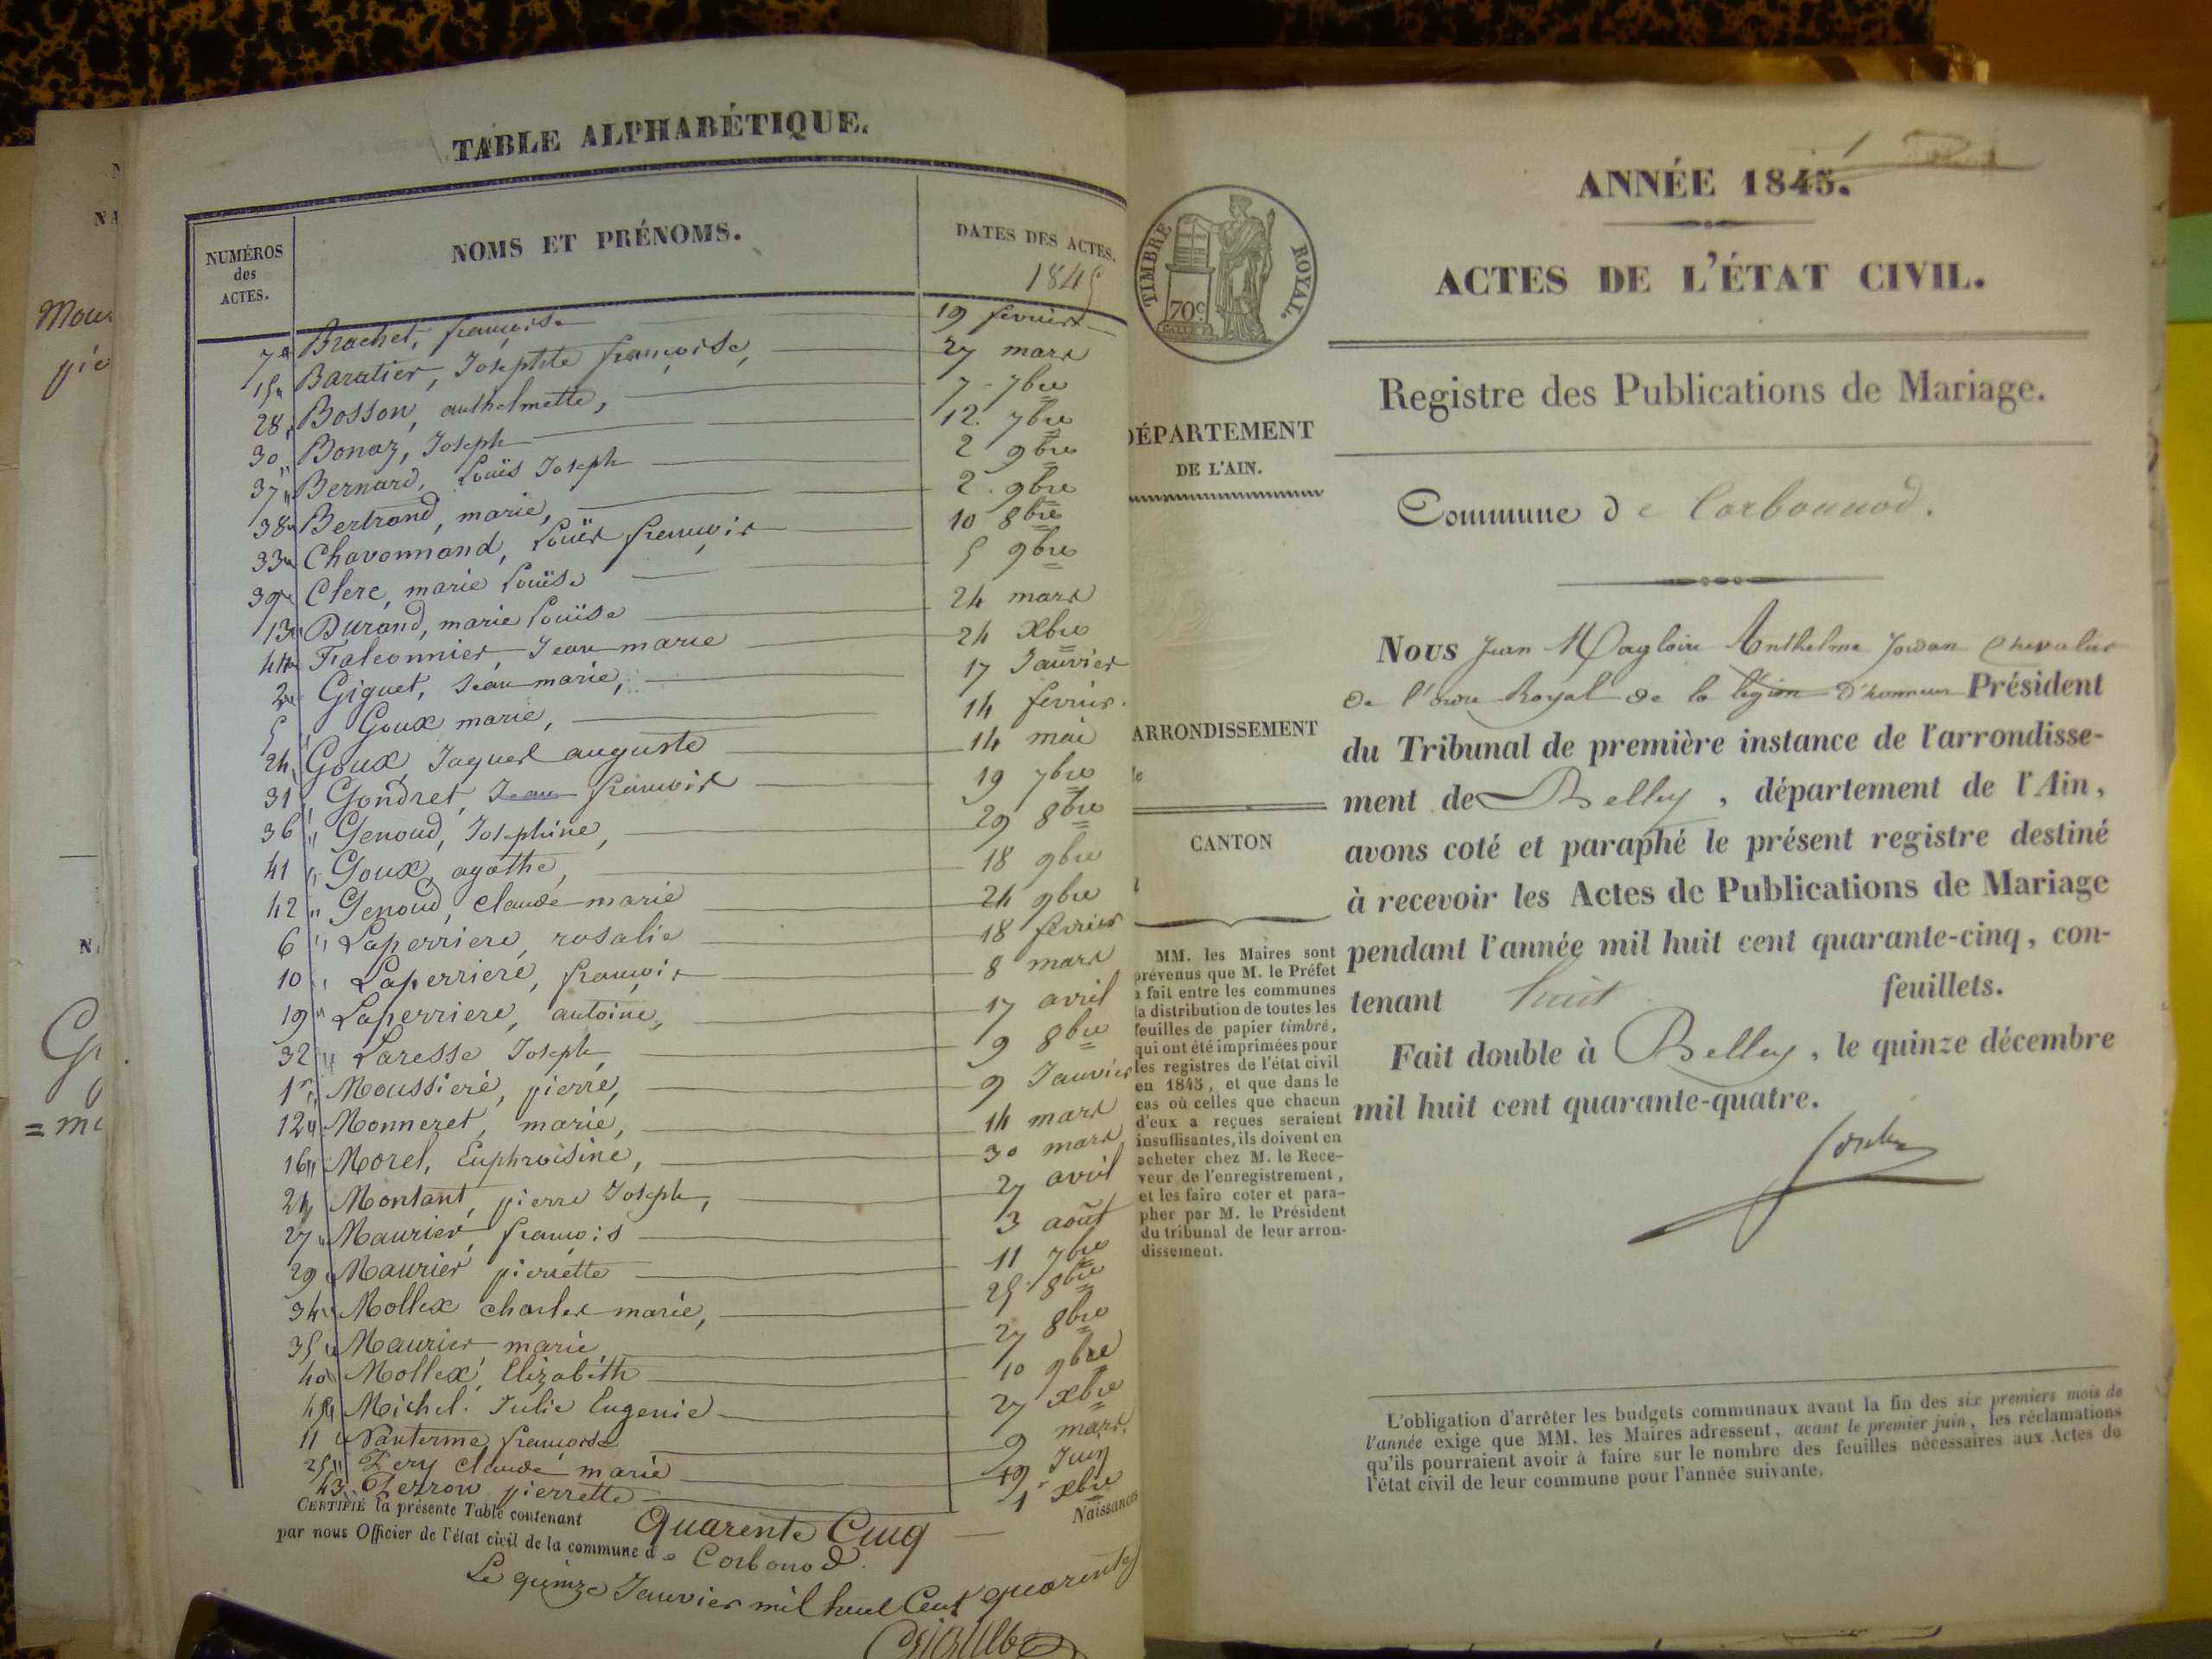 TABLE ALPHABÉTIQUE.
NUMÉROS des ACTES. NOMS ET PRÉNOMS. DATES DES ACTES.
1845
7 Brachet, françoise 19 février
15 Baratier, Josephte françoise, 27 mars
28 Bosson, anthelmette, 7 7bre
30 Bonaz, Joseph 12. 7bre
37 Bernard, Louis Joseph 2 9bre
38 Bertrand, marie, 2. 9bre
33 Chavonnand, Louis françois 10 8bre
39 Clerc, marie Louïse 5 9bre
13 Durand, marie Louïse 24 mars
44 Falconnier, Jean marie 24 Xbre
2 Giguet, Jean marie, 17 Janvier
5 Goux marie, 14 février.
24 Goux, Jaques auguste 14 mai
31 Gondret, Jean françois 19 7bre
36 Genoud, Josephine, 29 8bre
41 Goux, agathe, 18 9bre
42 Genoud, claude marie 24 9bre
6 Laperriere, rosalie 18 février
10 Laperriere, françois 8 mars
19 Laperriere, antoine, 17 avril
32 Laresse Joseph, 9 8bre
1er Moussieré, pierre, 9 Janvier
12 Monneret, marie, 14 mars
16 Morel, Euphroisine, 30 mars
21 Montant, pierre Joseph, 27 avril
27 Maurier, françois 3 août
29 Maurier pierrette 11 7bre
34 Mollex charles marie, 25 8bre
35 Maurier marie 27 8bre
40 Mollex, Elizabéth 10 9bre
45 Michel. Julie Eugenie 27 xbre
11 Nanterme, françoise 9 mars.
25 Pery claude marie 19 Juin
43 Perron pierrette 1er xbre
CERTIFIÉ la présente Table contenant Quarente Cinq Naissances
par nous Officier de l'état civil de la commune de Corbonod.
Le quinze Janvier mil huit Cent quarente
ANNÉE 1845.
ACTES DE L'ÉTAT CIVIL.
Registre des Publications de Mariage.
Commune de Corbonnod.
TIMBRE ROYAL.
70c
DÉPARTEMENT
DE L'AIN.
ARRONDISSEMENT
CANTON
MM. les Maires sont
prévenus que M. le Préfet
a fait entre les communes
la distribution de toutes les
feuilles de papier timbré,
qui ont été imprimées pour
les registres de l'état civil
en 1845, et que dans le
cas où celles que chacun
d'eux a reçues seraient
insuffisantes, ils doivent en
acheter chez M. le Rece-
veur de l'enregistrement,
et les faire coter et para-
pher par M. le Président
du tribunal de leur arron-
dissement.
Nous Jean Magloire Anthelme Jordan Chevalier
de l'ordre Royal de la légion d'honneur Président
du Tribunal de première instance de l'arrondisse-
ment de Belley, département de l'Ain,
avons coté et paraphé le présent registre destiné
à recevoir les Actes de Publications de Mariage
pendant l'année mil huit cent quarante-cinq, con-
tenant huit feuillets.
Fait double à Belley, le quinze décembre
mil huit cent quarante-quatre.
L'obligation d'arrêter les budgets communaux avant la fin des six premiers mois de
l'année exige que MM. les Maires adressent, avant le premier juin, les réclamations
qu'ils pourraient avoir à faire sur le nombre des feuilles nécessaires aux Actes de
l'état civil de leur commune pour l'année suivante.